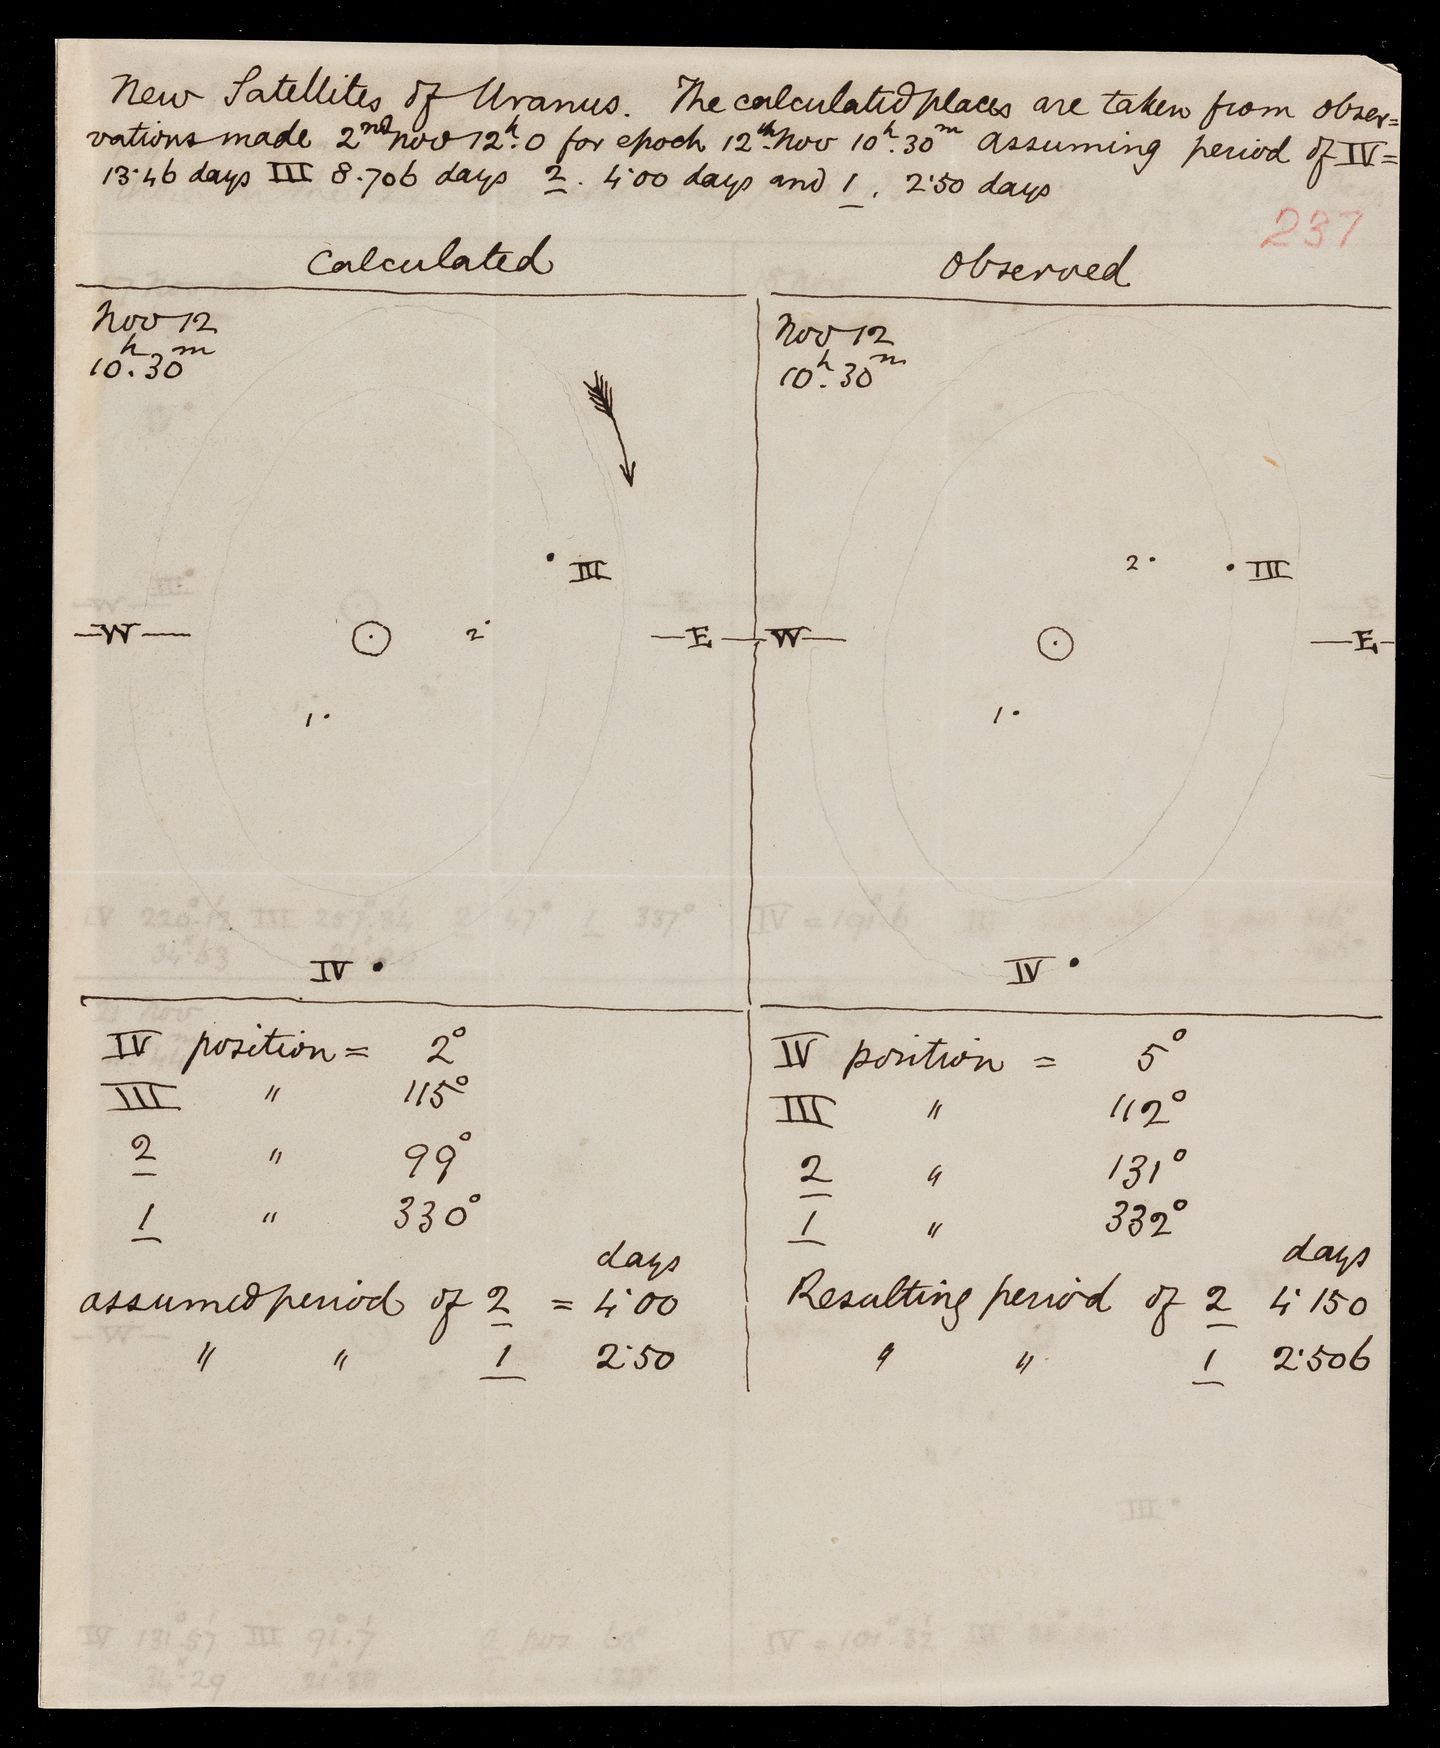 New Satellites of Uranus. The calculated places are taken from obser=
vations made 2nd Nov 12h.0 for epoch 12th Nov 10h.30m assuming period of IV =
13.46 days III 8.706 days 2. 4.00 days and 1. 2.50 days
237
Calculated
Nov 12
10h.30m
III
W
2
E
1
IV
IV position = 2°
III " 115°
2 " 99°
1 " 330°
days
assumed period of 2 = 4.00
" " 1 2.50
Observed
Nov 12
10h.30m
2
III
W
E
1
IV
IV position = 5°
III " 112°
2 " 131°
1 " 332°
days
Resulting period of 2 4.150
" " 1 2.506